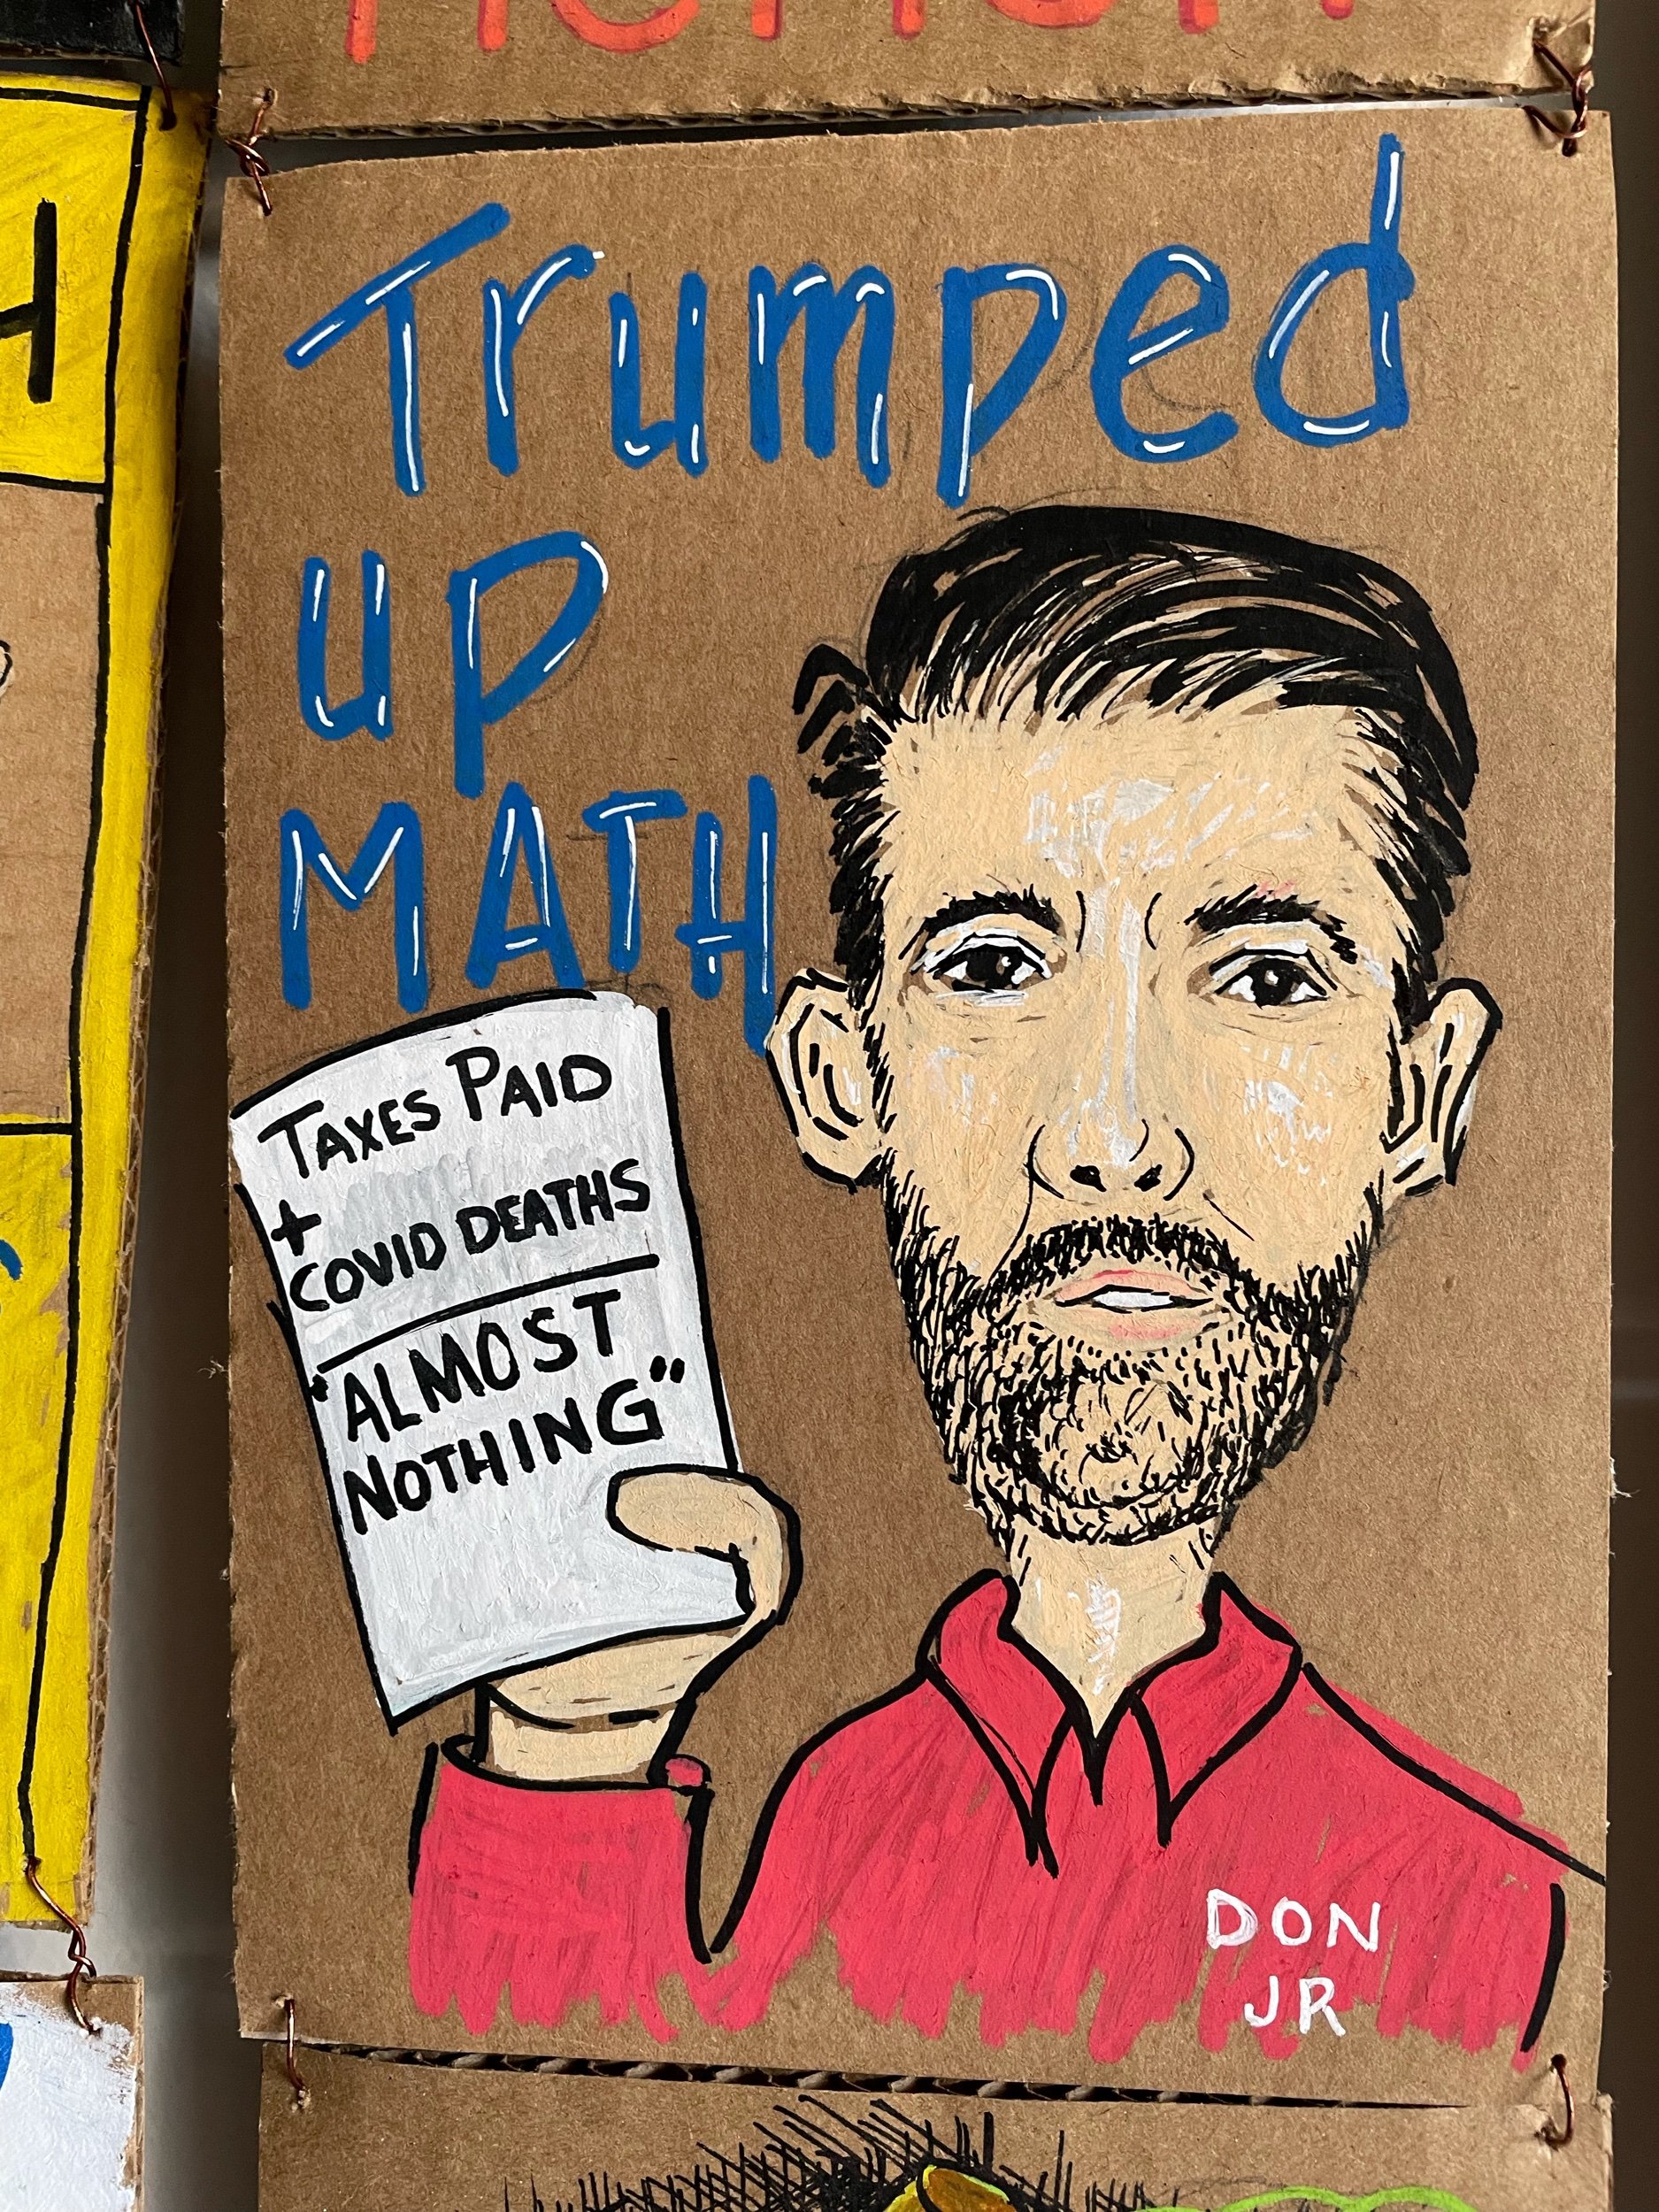 Trumped
up
MATH
TAXES PAID
+
COVID DEATHS
"ALMOST
NOTHING"
DON
JR